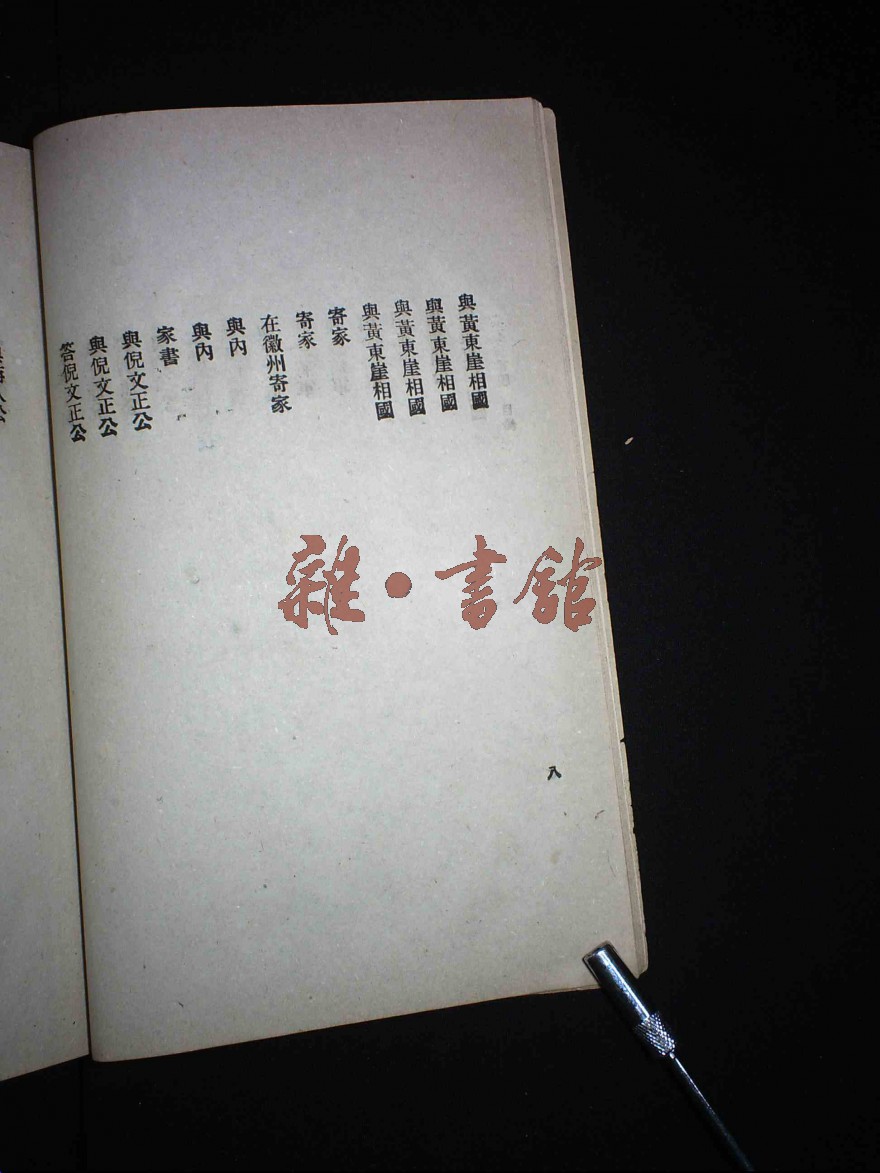 與黃東崖相國
與黃東崖相國
與黃東崖相國
與黃東崖相國
寄家
寄家
在徽州寄家
與內
與內
家書
與倪文正公
與倪文正公
答倪文正公
八
雜·書館